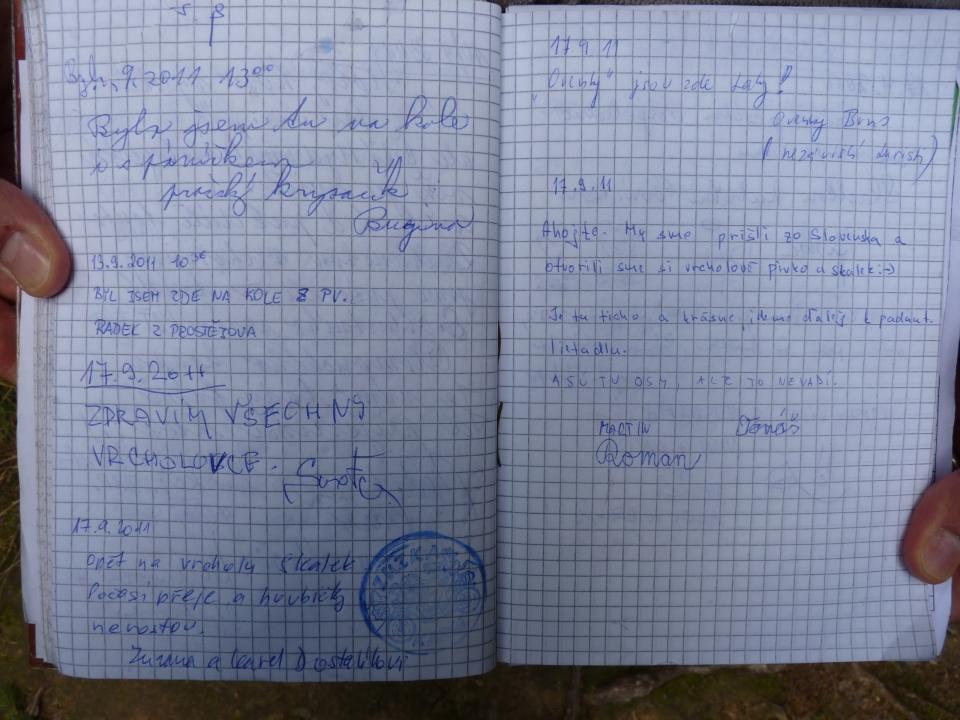 9. 2011 13⁰⁰
Byla jsem tu na kole
i s páníčkem
pražský krysařík
13.9.2011 10³⁰
BYL JSEM ZDE NA KOLE Z PV.
RADEK Z PROSTĚJOVA
17.9.2011
ZDRAVÍM VŠECHNY
VRCHOLOVCE.
17.9.2011
Opět na vrcholu Skalek
Počasí přeje a houbičky
nerostou.
Zuzana a Karel Dostálovi
17 9 11
jsou zde taky!
Brno
17.9.11
Ahojte. My sme prišli zo Slovenska a
otvorili sme si vrcholové pivko a skalek:-)
Je tu ticho a krásne ideme ďalej k padnut.
lietadlu.
A SÚ TU OSY, ALE TO NEVADÍ.
MARTIN Tomáš
Roman